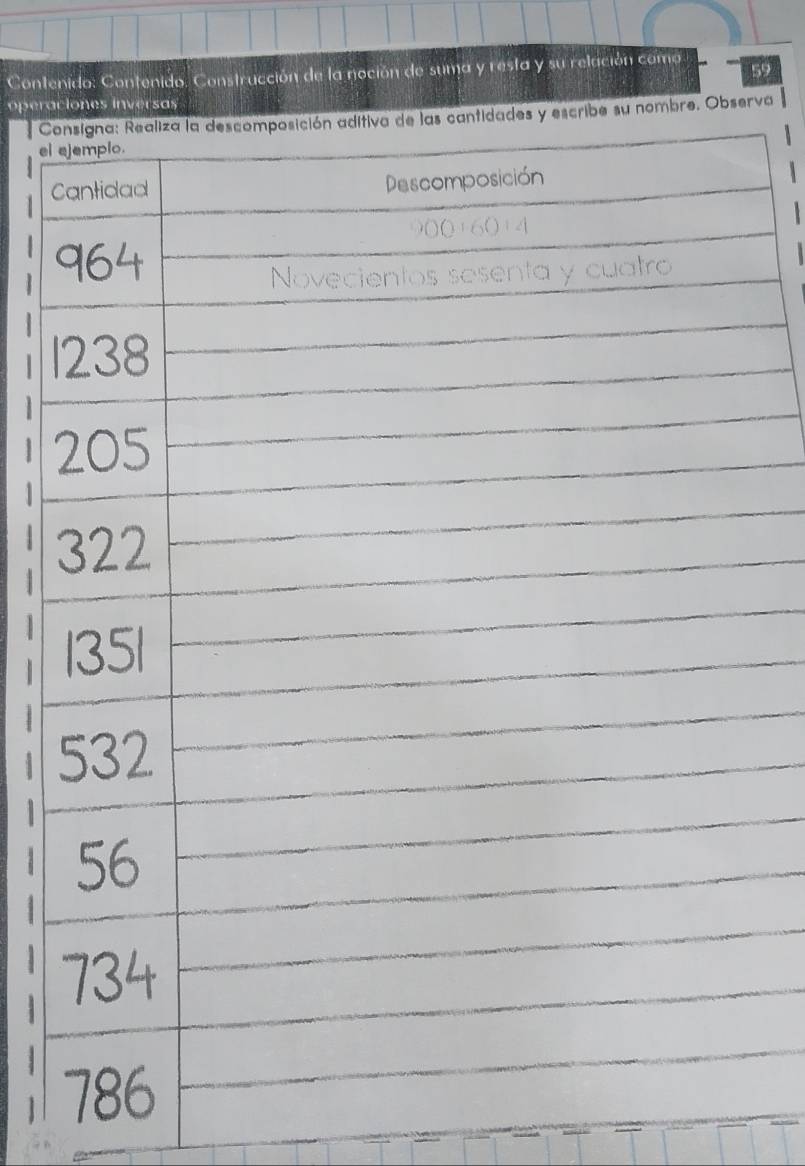 Contenido: Contenido. Construcción de la noción de suma y resta y su relación como
operaciones inversas
59
Consigna: Realiza la descomposición aditiva de las cantidades y escribe su nombre. Observa
el ejemplo.
Cantidad Descomposición
964 900+60+4
Novecientos sesenta y cuatro
1238
205
322
1351
532
56
734
786